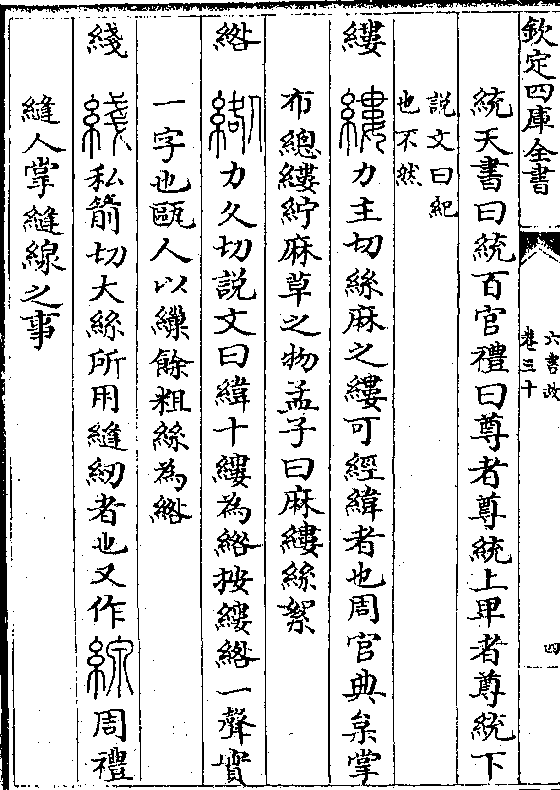 欽定四庫全書
六書故
卷三十
四
統天書曰統百官禮曰尊者尊統上卑者尊統下
説文曰紀
也不然
縷 縷力主切絲麻之縷可經緯者也周官典枲掌
布緫縷紵麻草之物孟子曰麻縷絲絮
綹 綹力久切説文曰緯十縷為綹按縷綹一聲實
一字也甌人以繅餘粗絲為綹
綫 綫私箭切大絲所用縫紉者也又作線周禮
縫人掌縫線之事